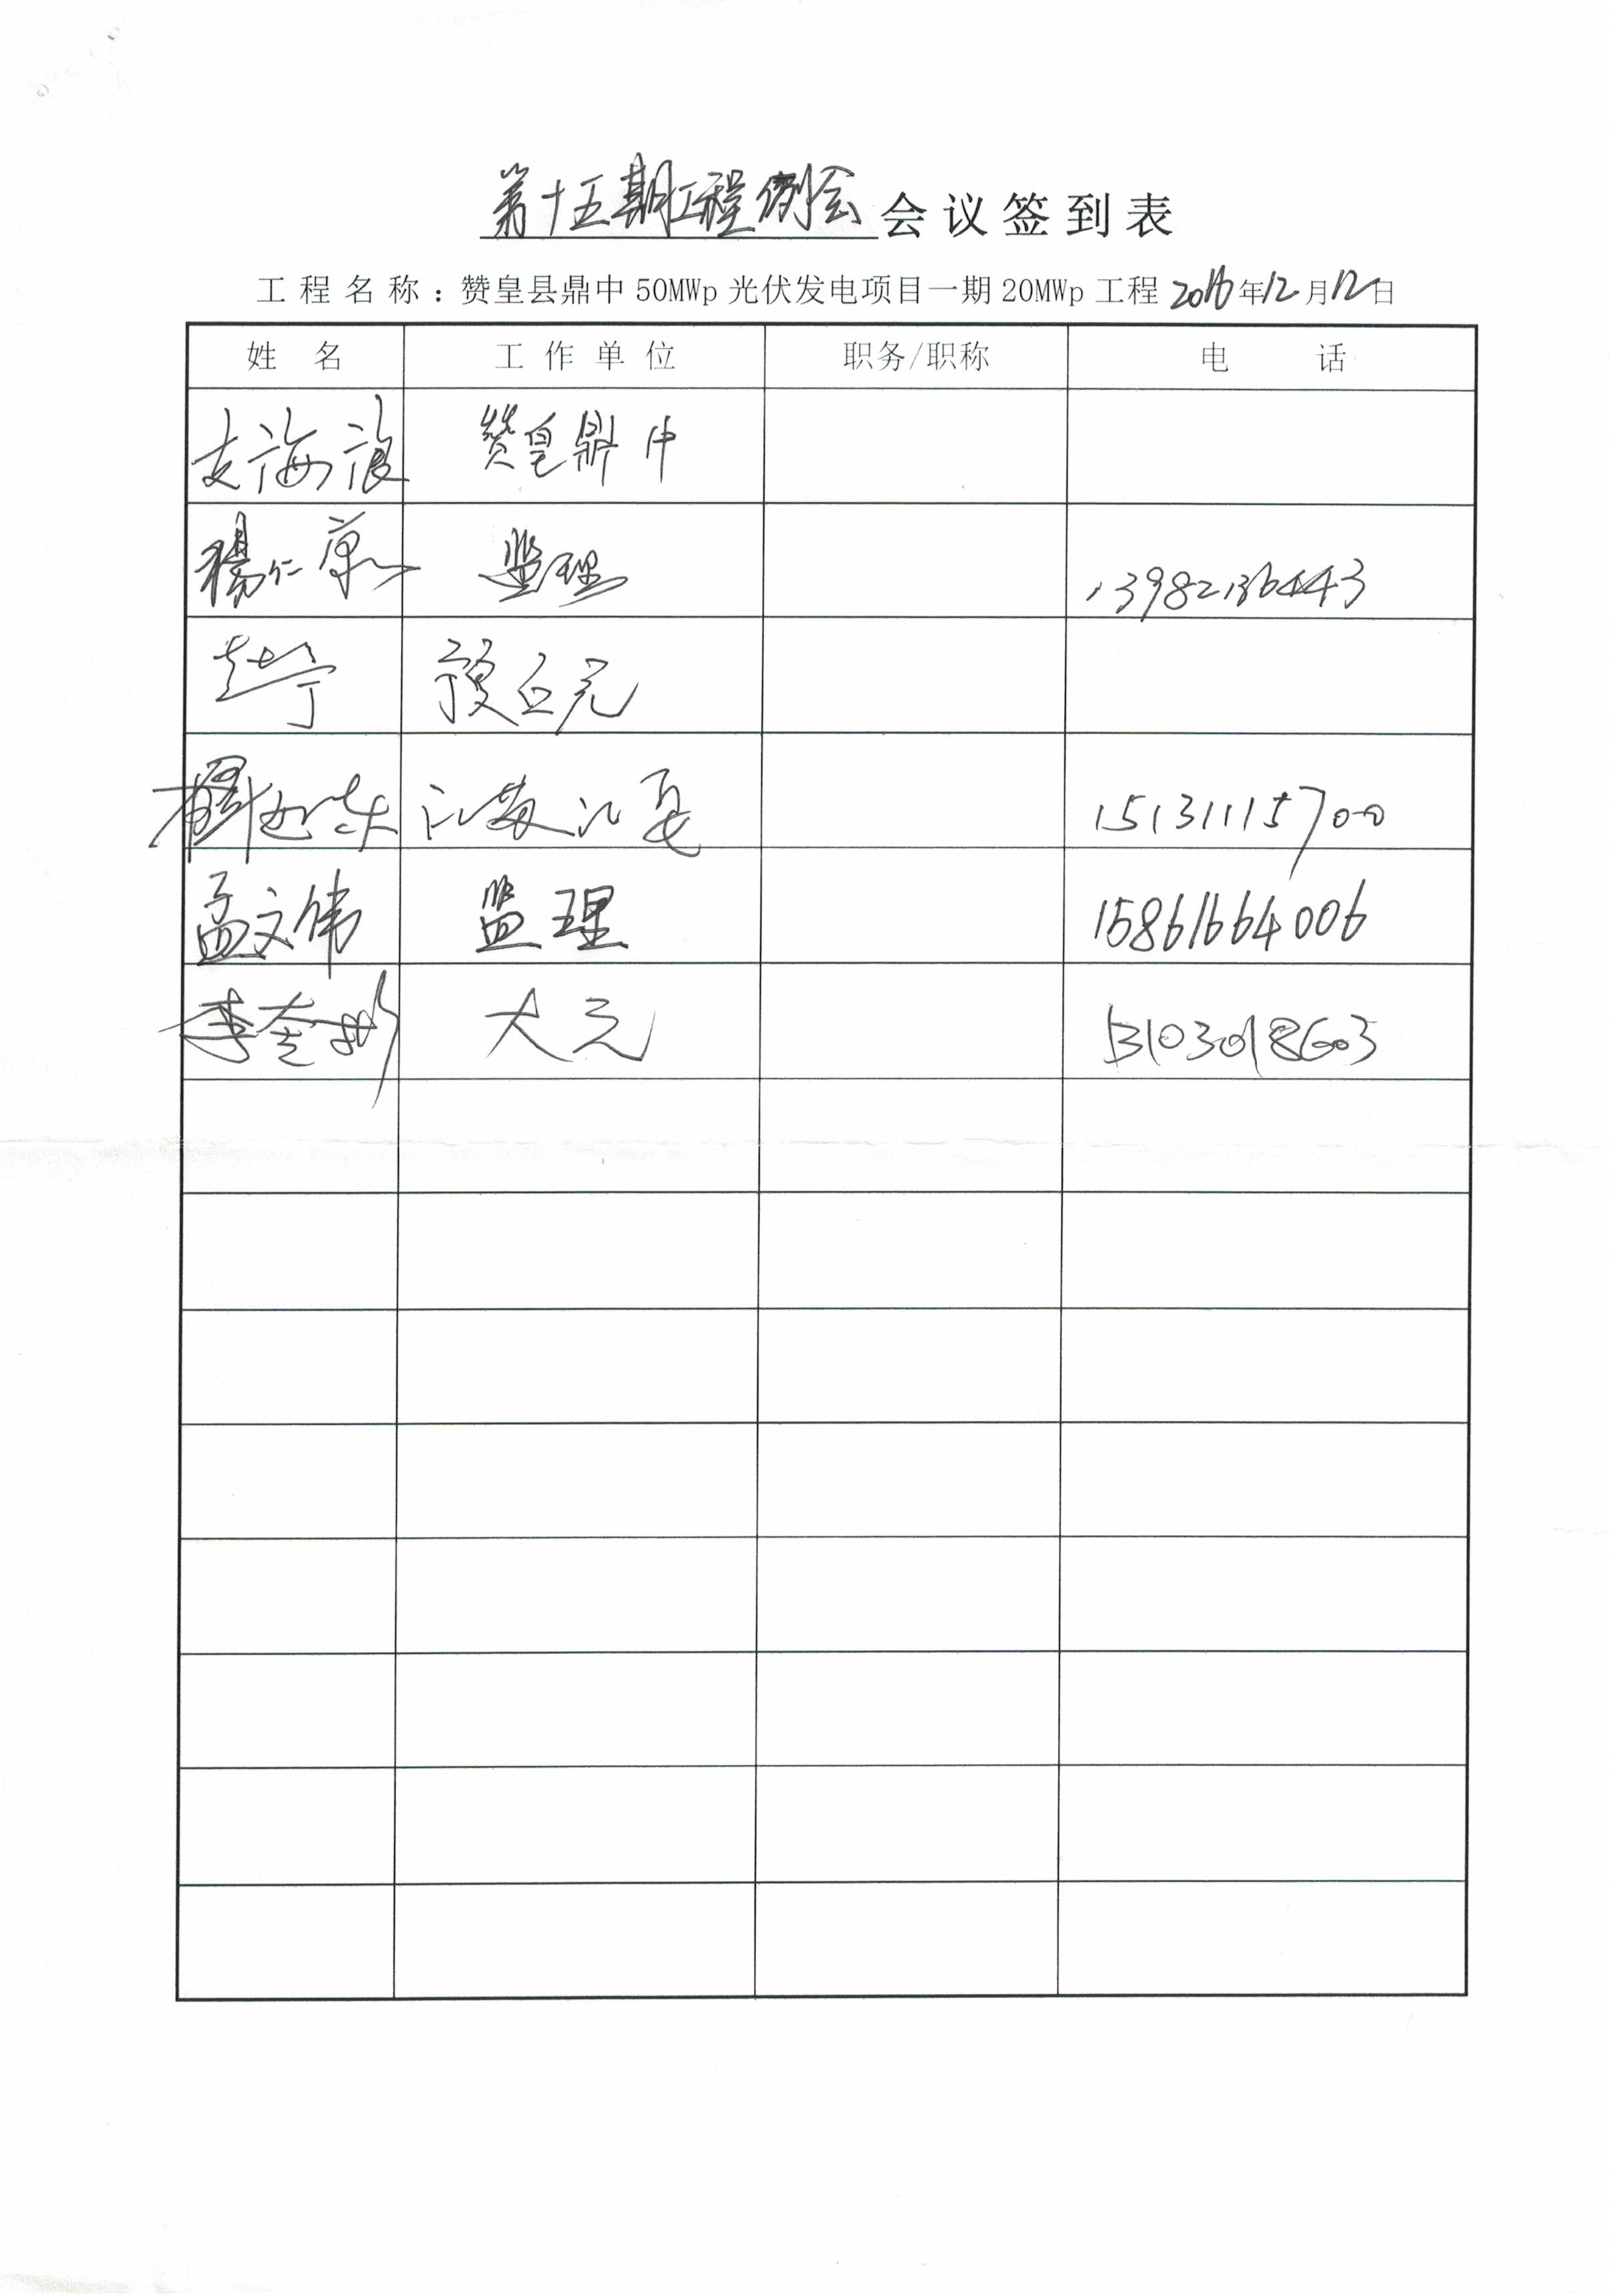 第十五期工程例会会议签到表
工程名称：赞皇县鼎中50MWp光伏发电项目一期20MWp工程 2016年12月12日
姓 名 工作单位 职务/职称 电 话
支海浪 赞皇鼎中
楊仁康 监理 13982136443
赵宁
江苏江夏 15131115700
孟文伟 监理 15861664006
李奎彬 大元 13103018603